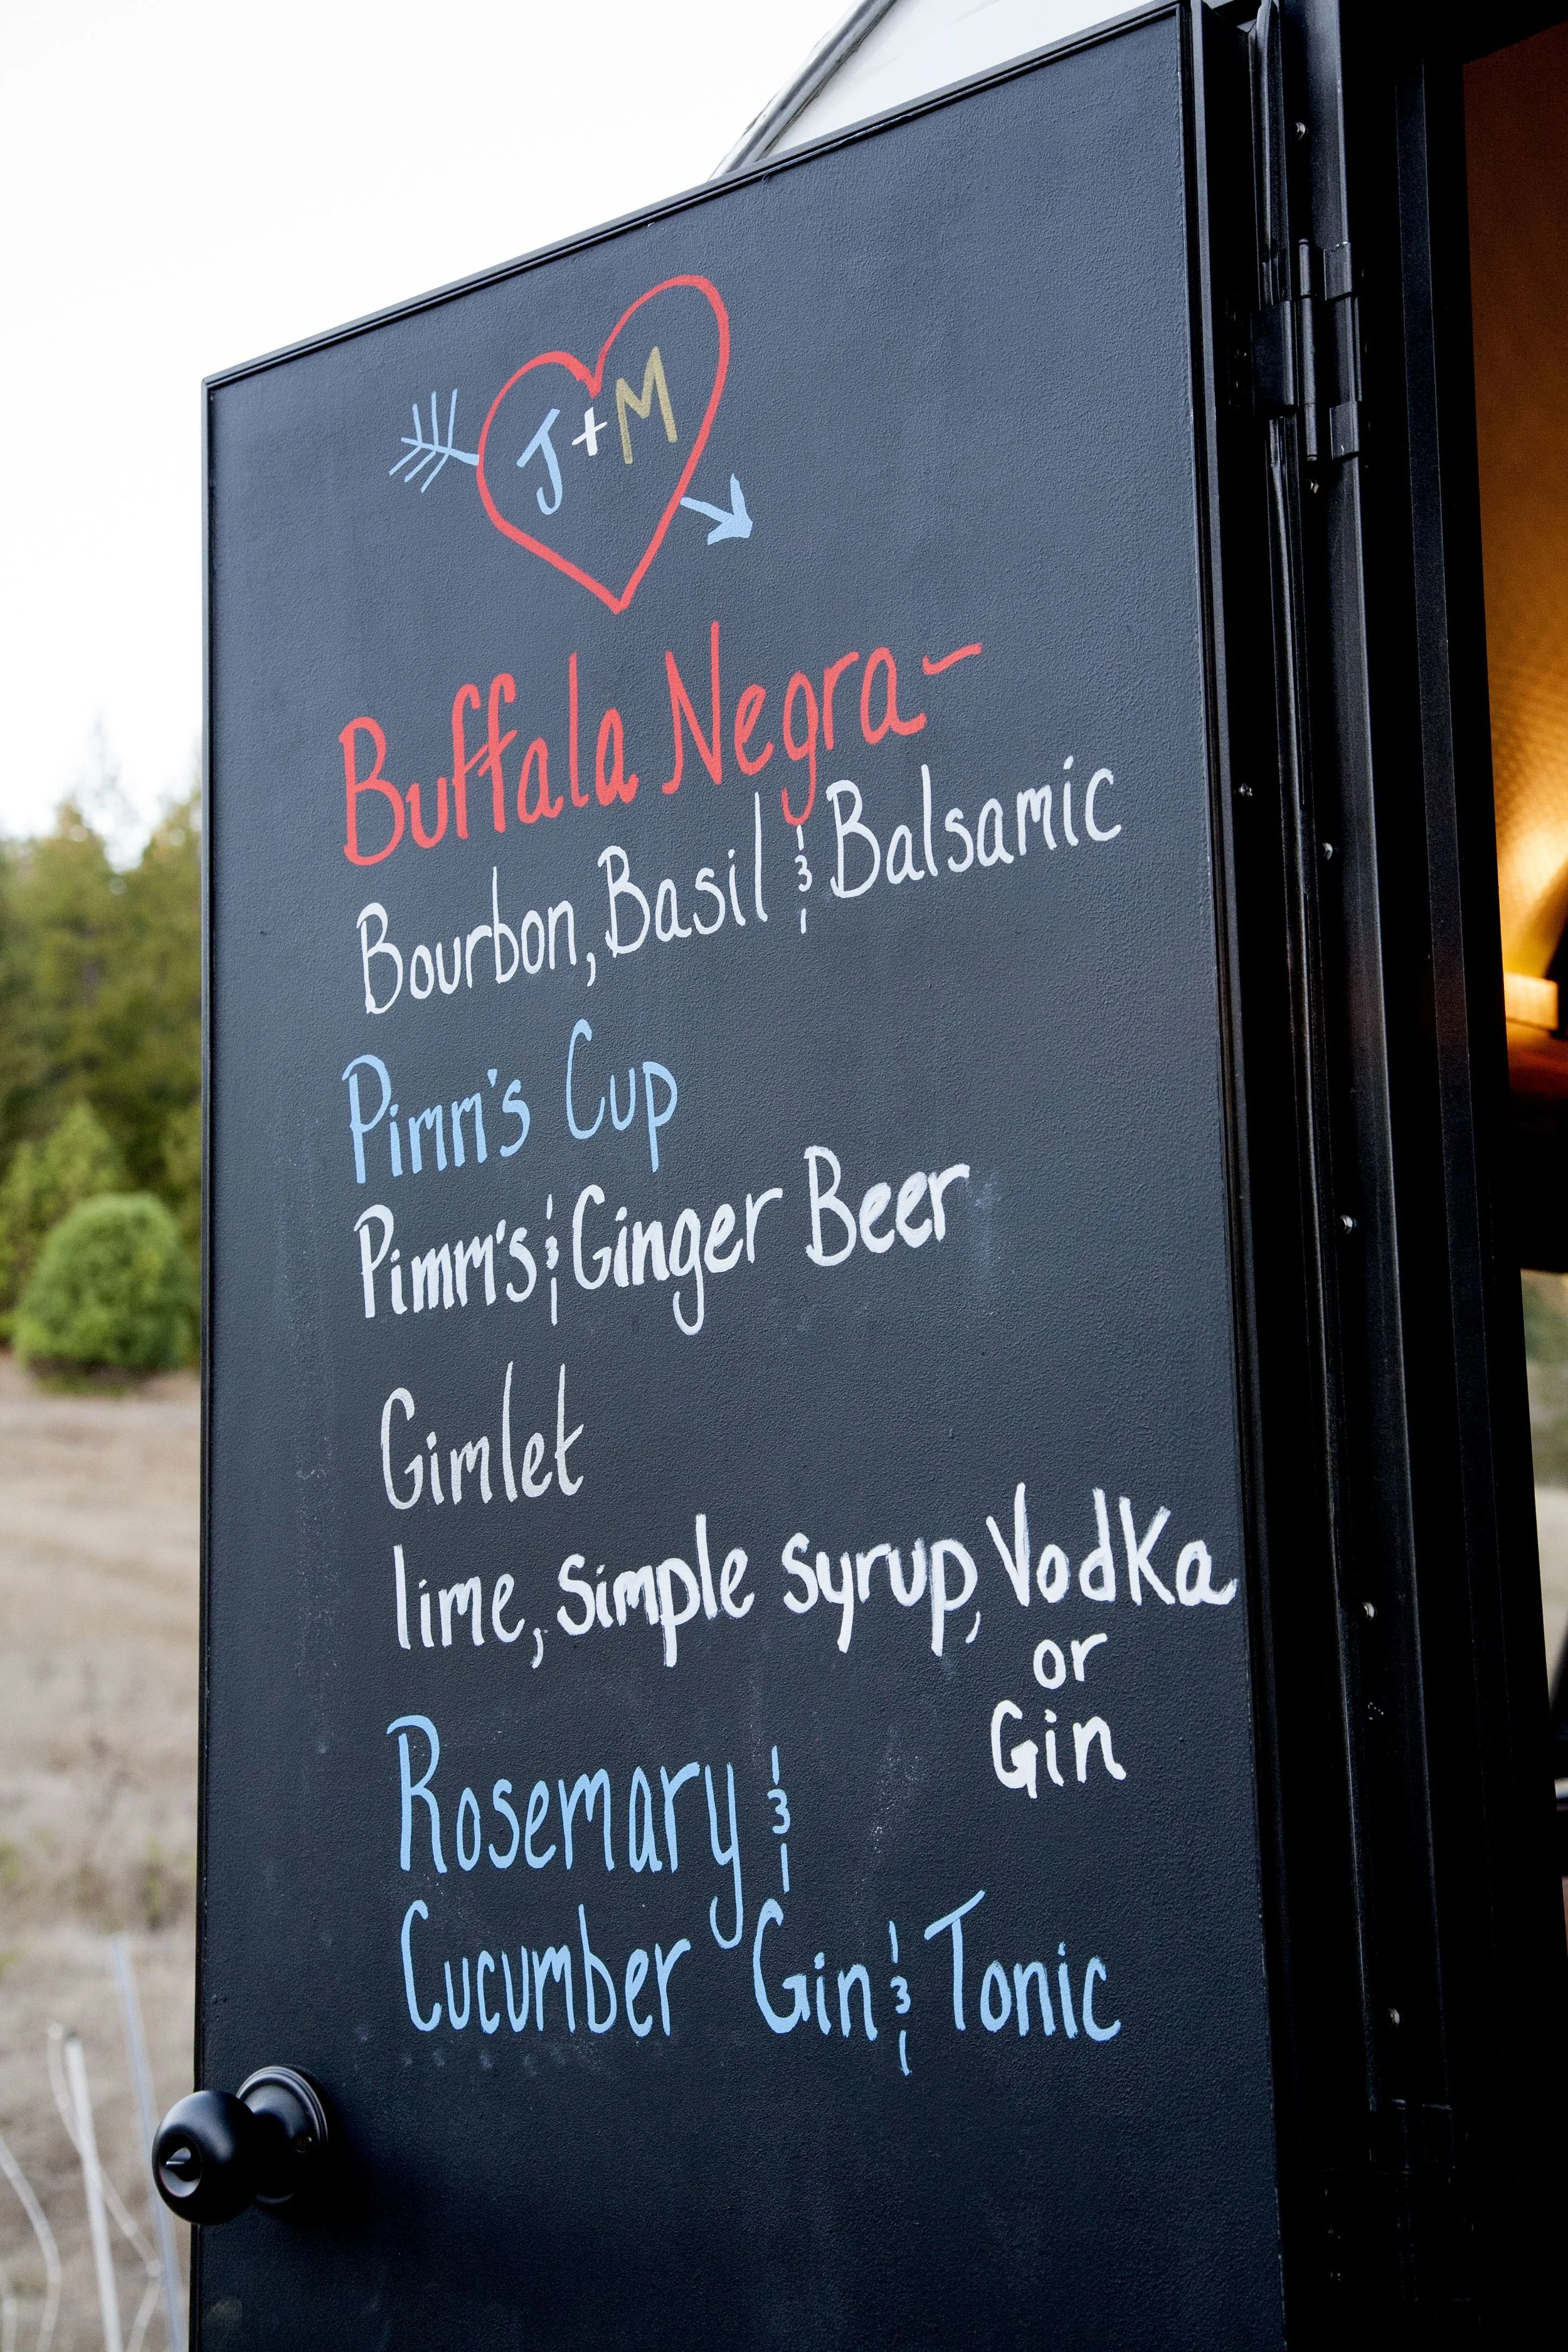 J+M
Buffala Negra-
Bourbon, Basil & Balsamic
Pimm's Cup
Pimm's & Ginger Beer
Gimlet
lime, simple syrup, Vodka
or
Gin
Rosemary &
Cucumber Gin & Tonic